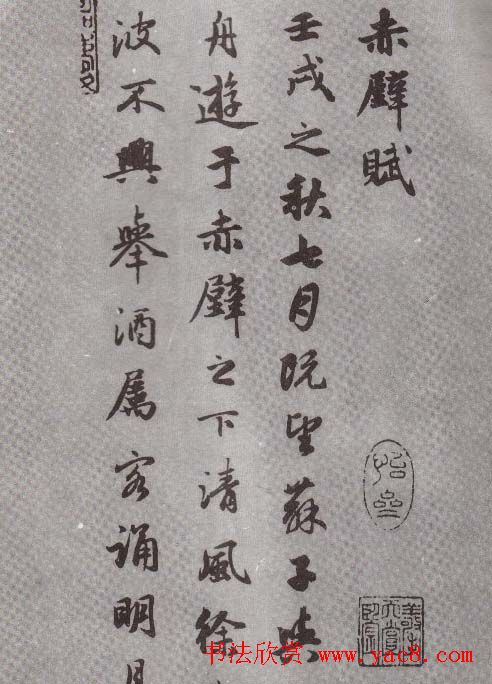 赤壁賦
壬戌之秋七月既望蘇子與
舟遊于赤壁之下清風徐
波不興舉酒属客誦明月
书法欣赏 www.yac8.com